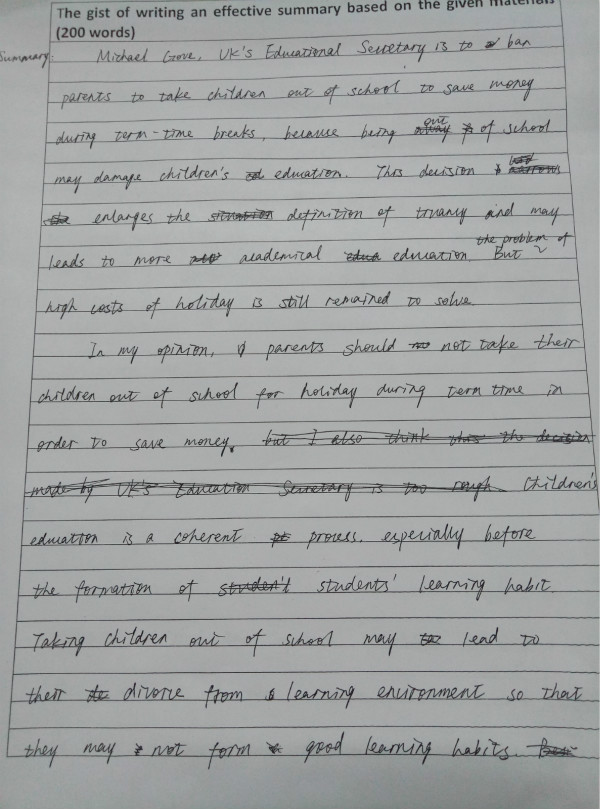 The gist of writing an effective summary based on the given materials
(200 words)
Summary: Michael Gove, UK's Educational Secretary is to ban
parents to take children out of school to save money
during term-time breaks, because being out of school
may damage children's education. This decision
enlarges the definition of truancy and may
leads to more academical education. But the problem of
high costs of holiday is still remained to solve.
In my opinion, parents should not take their
children out of school for holiday during term time in
order to save money. but I also think the decision
made by UK's Education Secretary is too rough Children's
education is a coherent process, especially before
the formation of student't students' learning habit.
Taking children out of school may lead to
their divorce from learning environment so that
they may not form good learning habits.